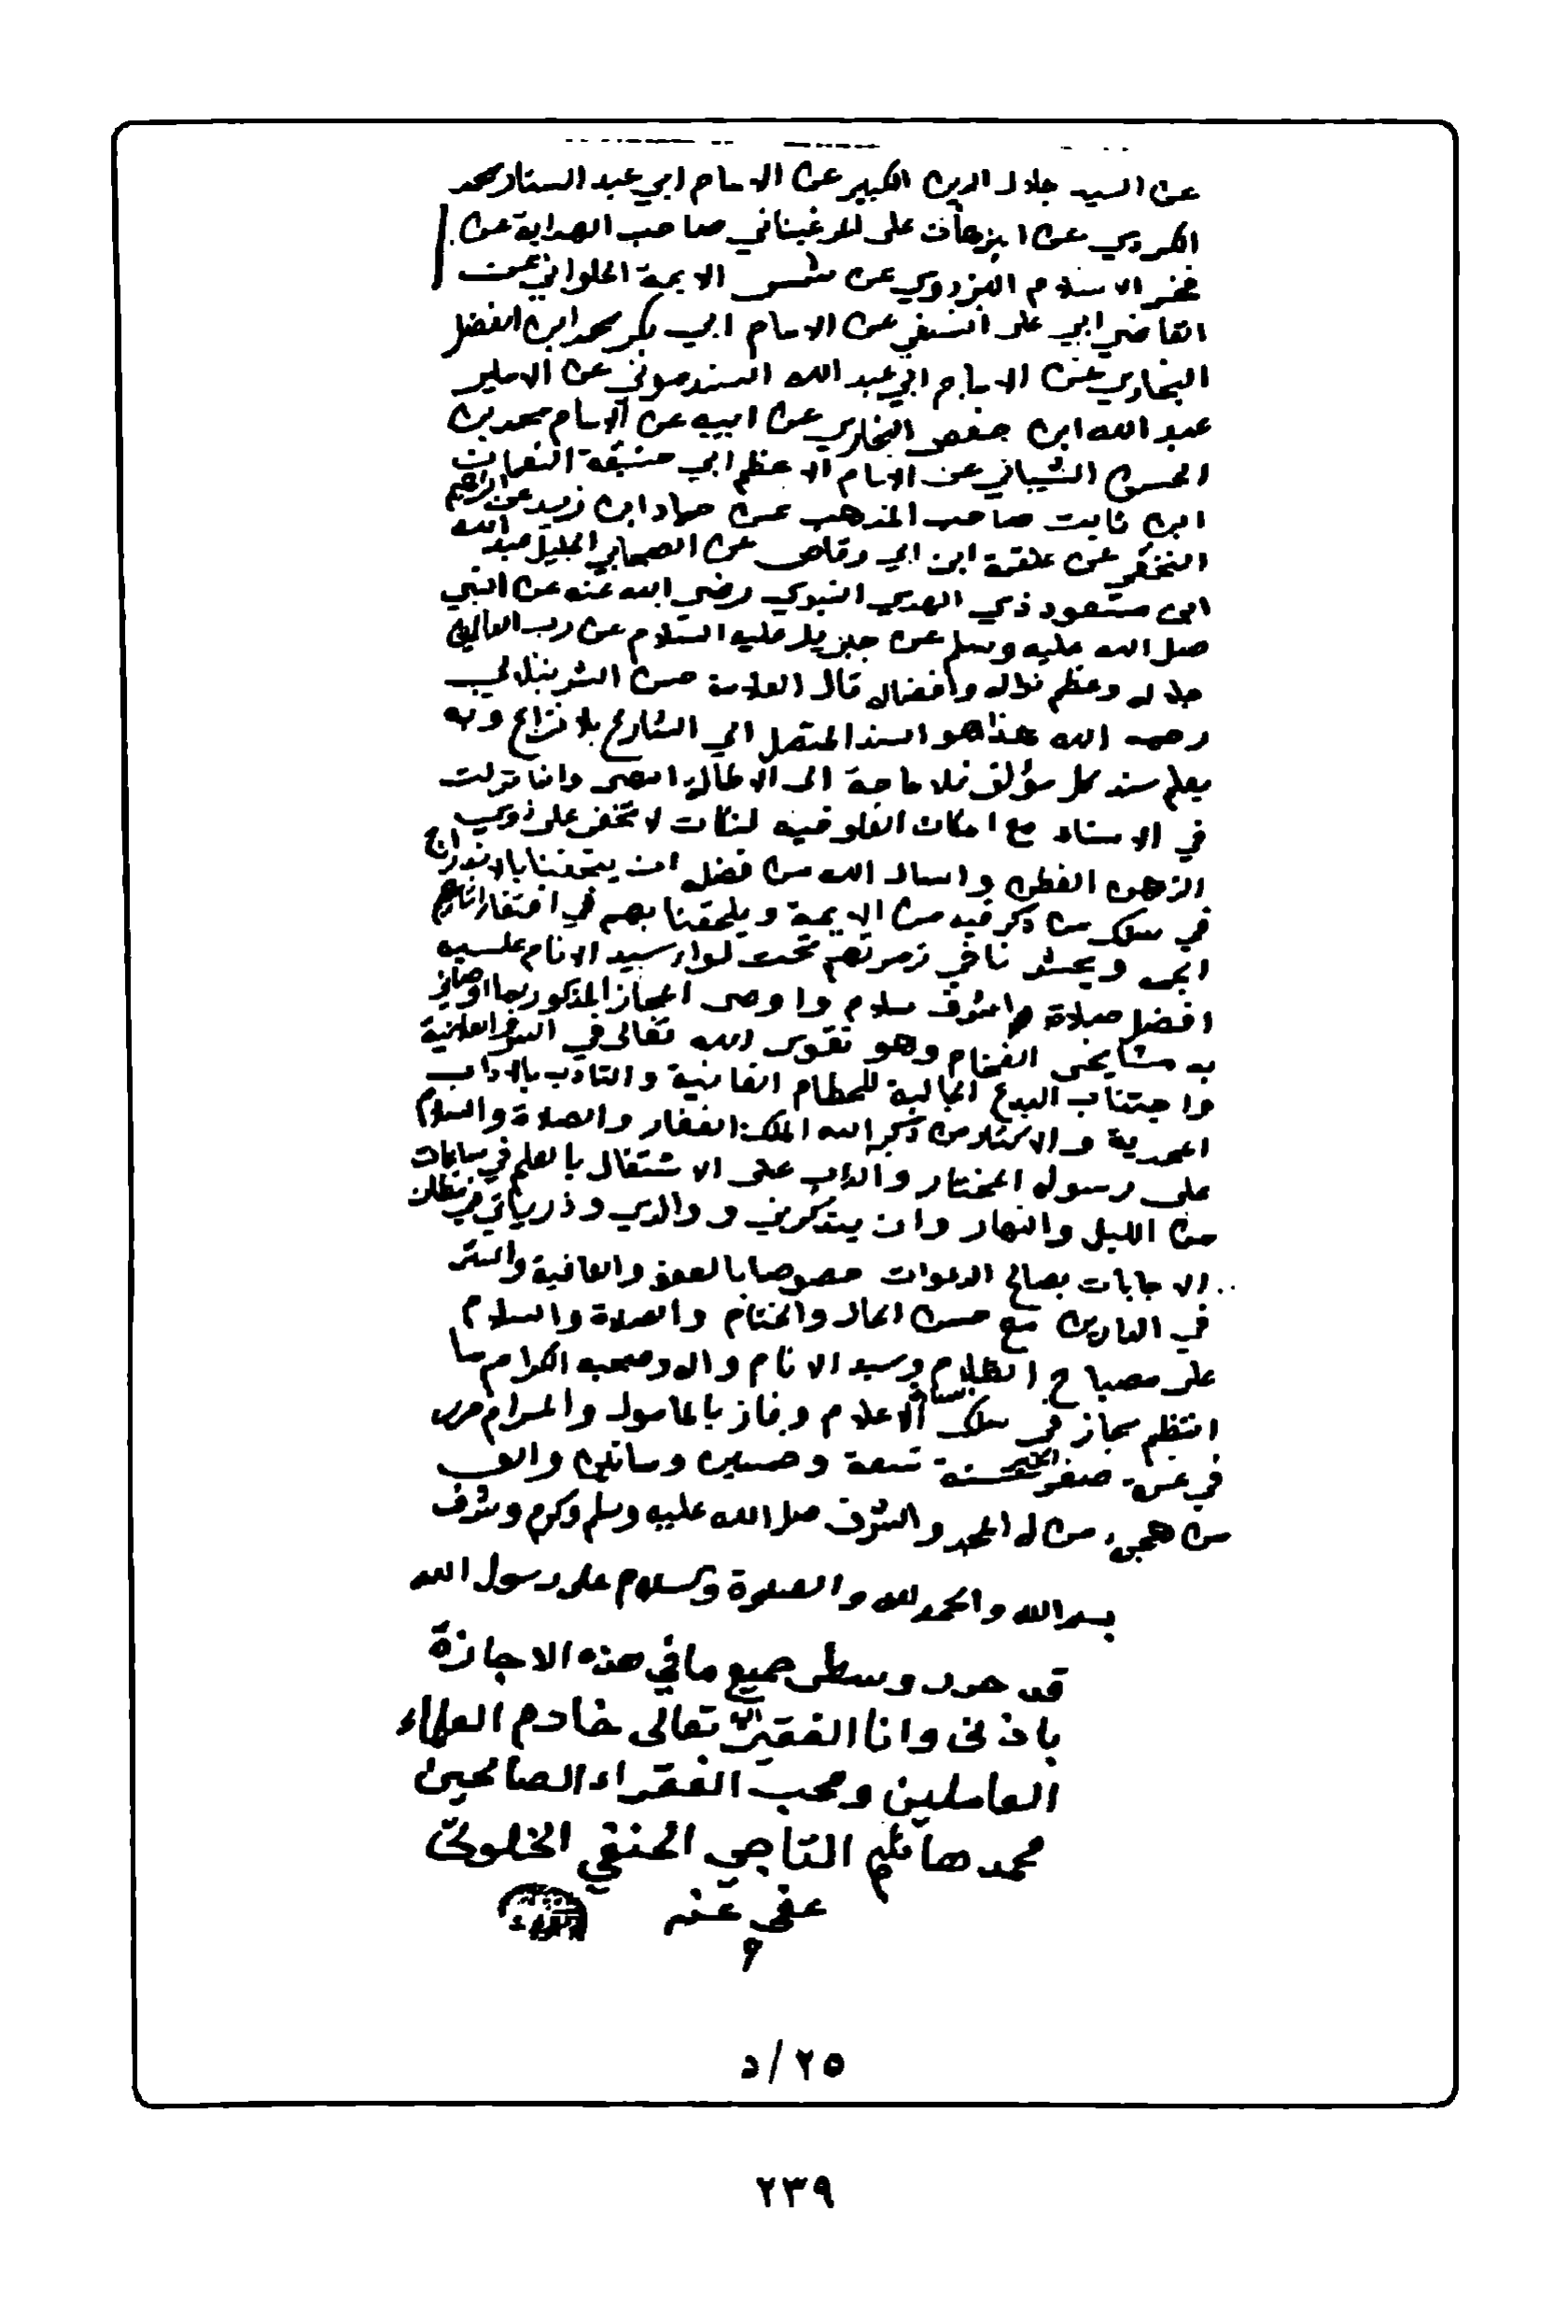 عن السيد جلال الدين الكبير عن الامام ابي عبد الستار محمد
الكردي عن البرهان علي المرغيناني صاحب الهداية عن
فخر الاسلام البزدوي عن شمس الايمة الحلواني عن
القاضي ابي علي النسفي عن الامام ابي بكر محمد ابن الفضل
البخاري عن الامام ابي عبد الله السندموني عن الامير
عبد الله ابن حفص البخاري عن ابيه عن الامام محمد بن
الحسن الشيباني عن الامام الاعظم ابي حنيفة النعمان
ابن ثابت صاحب المذهب عن حماد ابن زيد عن ابراهيم
النخعي عن علقمة ابن ابي وقاص عن الصحابي الجليل عبد الله
ابن مسعود ذي الهدي النبوي رضي الله عنه عن النبي
صلى الله عليه وسلم عن جبريل عليه السلام عن رب العالمين
جلاله وعظم نواله وافضاله قال العلامة حسن الشرنبلالي
رحمه الله هذا هو السند المتصل الى الشارع بلا نزاع وبه
يعلم سند كل مؤلف فلا حاجة الى الاطالة انتهى وانا نزلت
في الاسناد مع امكان العلو فيه لنكات لا تخفى على ذوي
الذهن الفطن واسال الله من فضله ان يتحفنا بالاندراج
في سلك من ذكر فيه من الايمة ويلحقنا بهم في اقتفا اثارهم
الجم ويحشرنا في زمرتهم تحت لواء سيد الانام عليه
افضل صلاة واشرف سلام واوصى المجاز المذكور بما اوصاني
به مشايخي الفخام وهو تقوى الله تعالى في السر والعلانية
واجتناب البدع الجالبة للحطام الفانية والتادب بالاداب
المحمدية والاكثار من ذكر الله الملك الغفار والصلاة والسلام
على رسوله المختار والداب على الاشتغال بالعلم في ساعات
من الليل والنهار وان يتذكرني ووالدي وذرياتي في مظان
الاجابات بصالح الدعوات خصوصا بالعفو والعافية والستر
في الدارين مع حسن الحال والختام والصلاة والسلام
على مصباح الظلام وسيد الانام واله وصحبه الكرام ما
انتظم مجاز في سلك الاعلام وفاز بالمامول والمرام حرر
في غرة صفر الخير سنة تسعة وخمسين وماتين والف
من هجرة من له المجد والشرف صلى الله عليه وسلم وكرم وشرف
بسم الله والحمد لله والصلوة والسلام على رسول الله
قد حرر وسطر جميع ما في هذه الاجازة
باذني وانا الفقير اليه تعالى خادم العلماء
العاملين ومحب الفقراء الصالحين
محمد هاشم التاجي الحنفي الخلوتي
عفي عنه
٢٥/د
٢٣٩